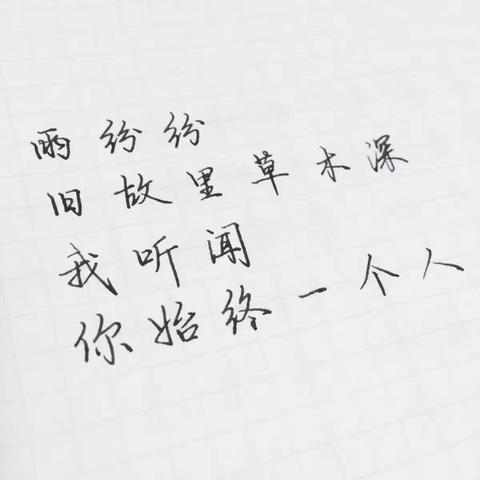 雨纷纷
旧故里草木深
我听闻
你始终一个人